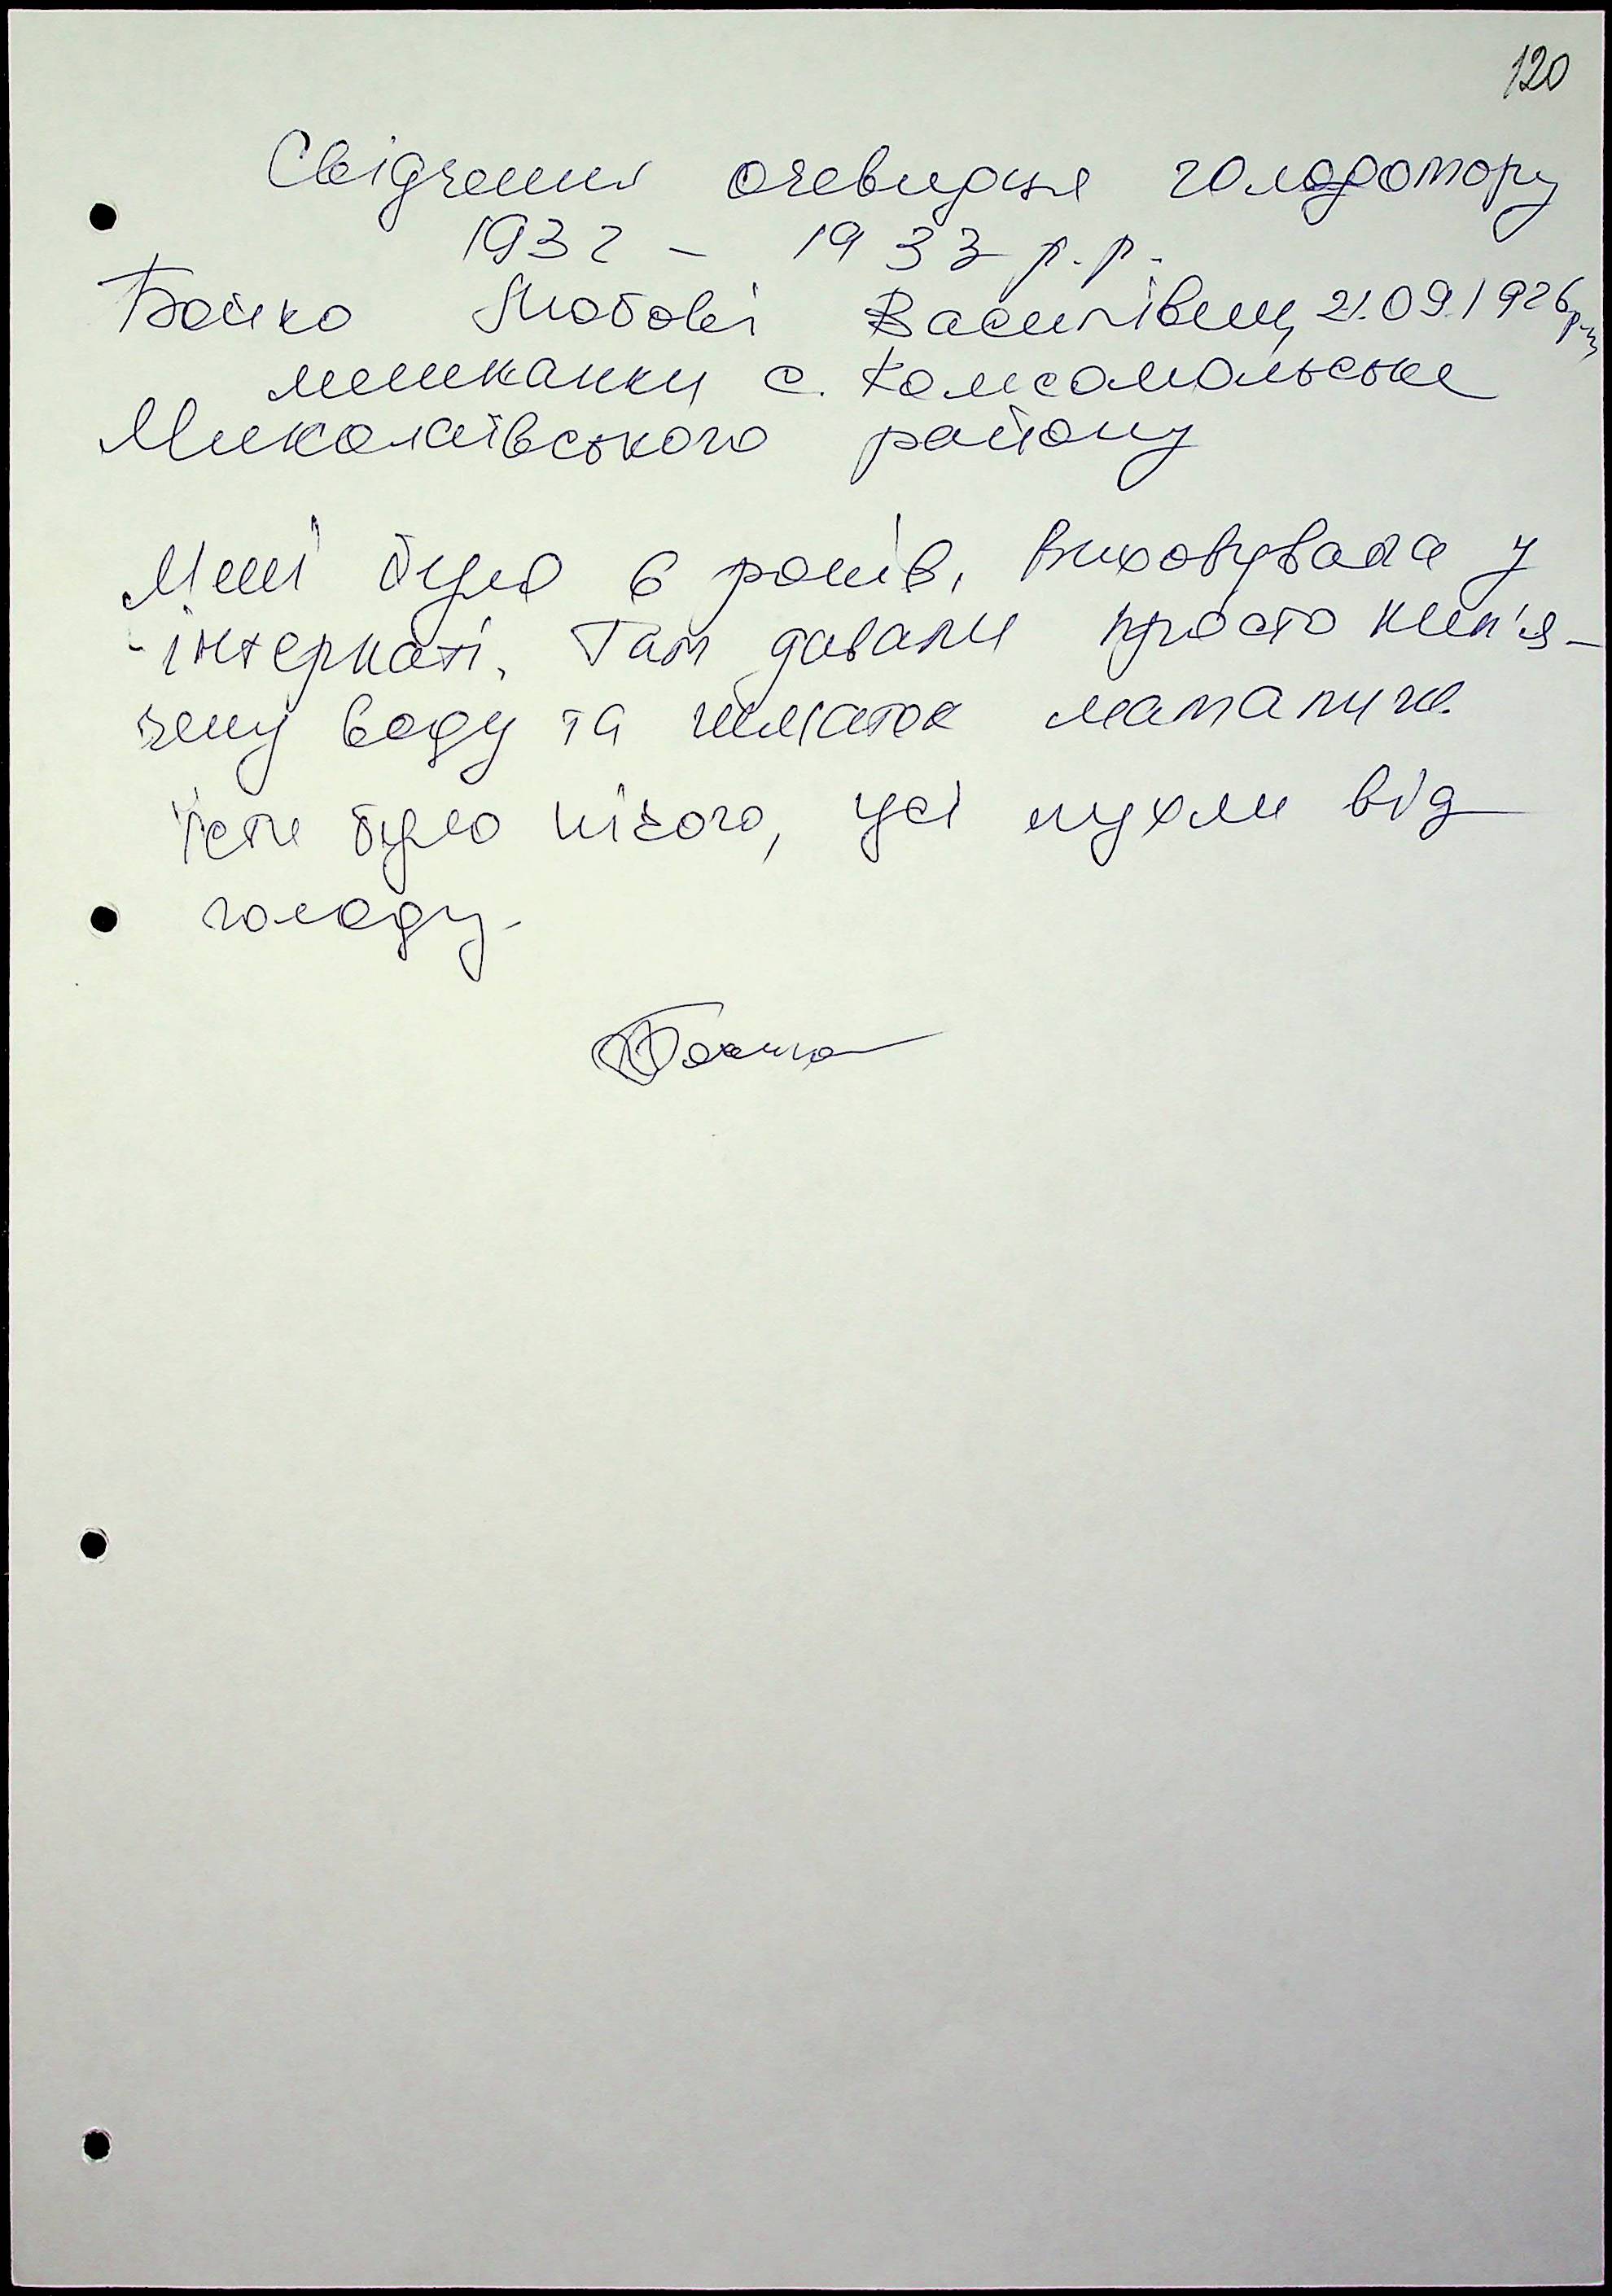 120
Свідчення очевидця голодомору
1932 - 1933 р.р.
Бойко Любові Василівни, 21.09.1926 р.н,
мешканки с. Комсомольське
Миколаївського району
Мені було 6 років, виховувала у
інтернаті. Там давали просто кип'я-
чену воду та шматок мамалиги.
Їсти було нічого, усі пухли від
голоду.
Бойко